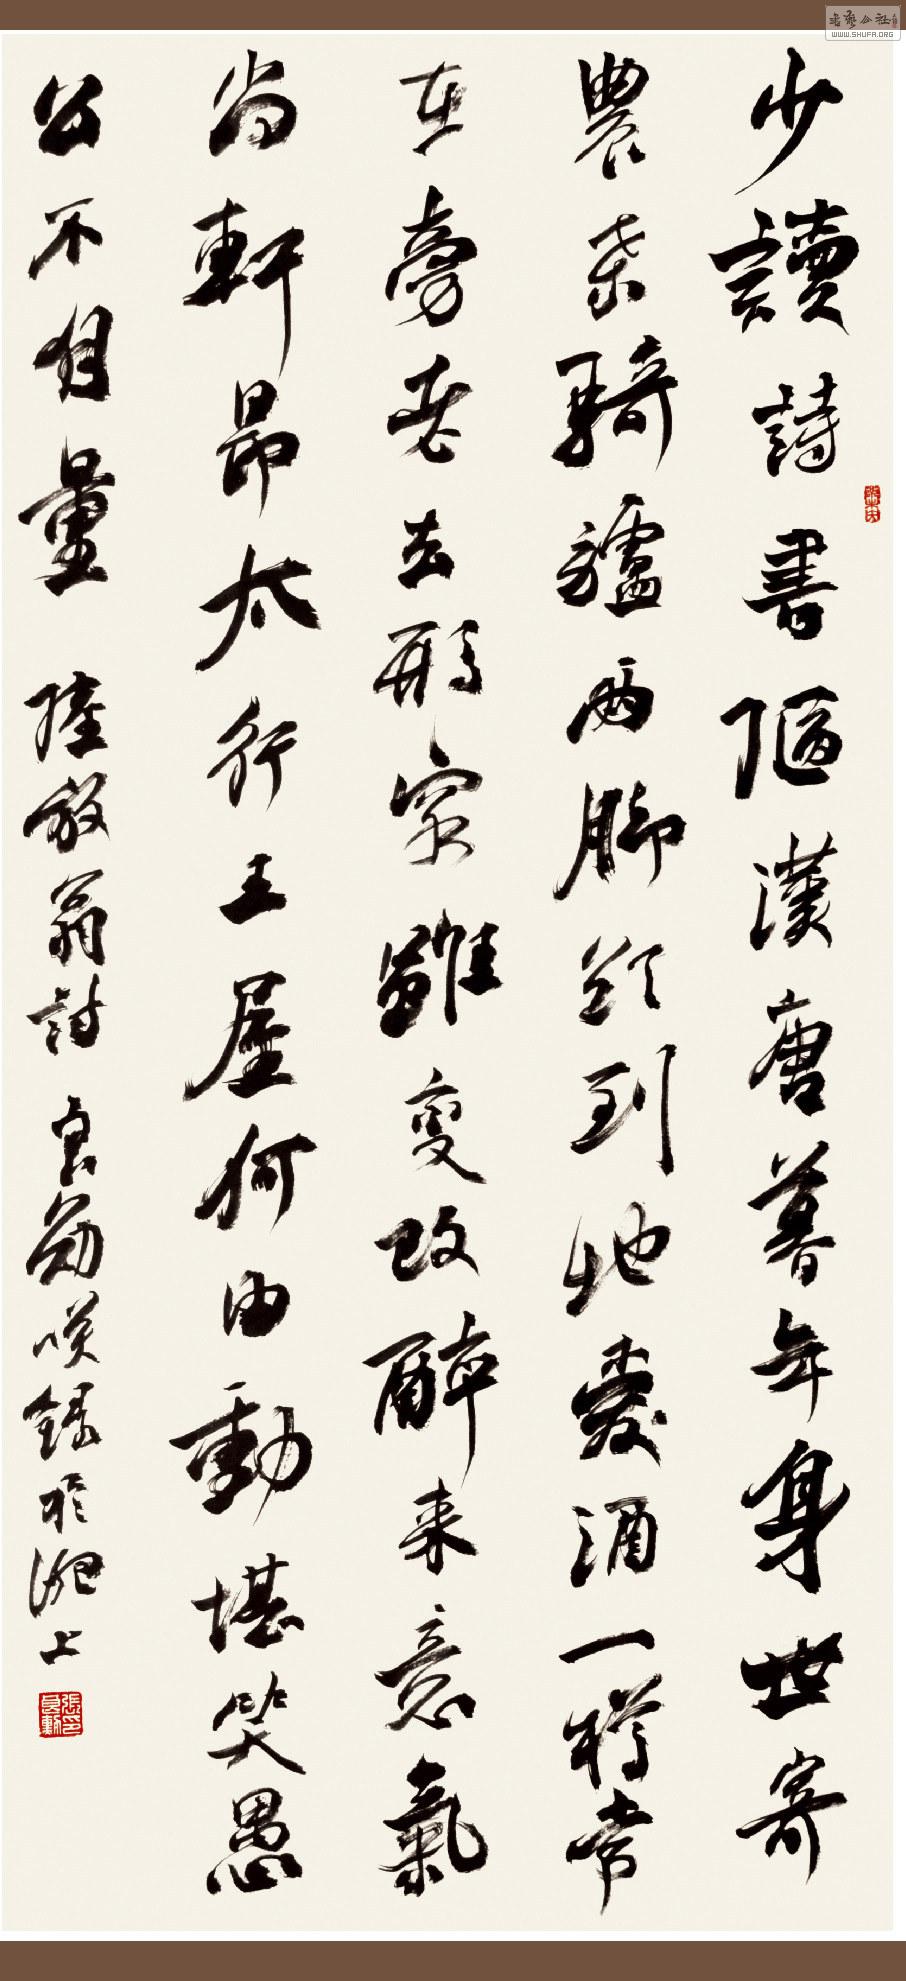 少讀詩書陋漢唐暮年身世寄
農桒騎驢兩脚欲到地愛酒一樽常
在旁老去形容雖變改醉来意氣
尚軒昂太行王屋何由動堪笑愚
公不自量 陸放翁詩 良勛咲錄於淝上
張良勛印
書藝公社
WWW.SHUFA.ORG